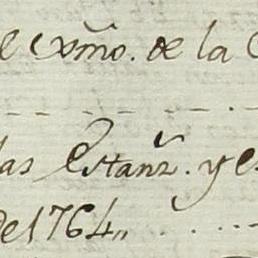 el exmo. de la
las Estanz. y es
de 1764,,